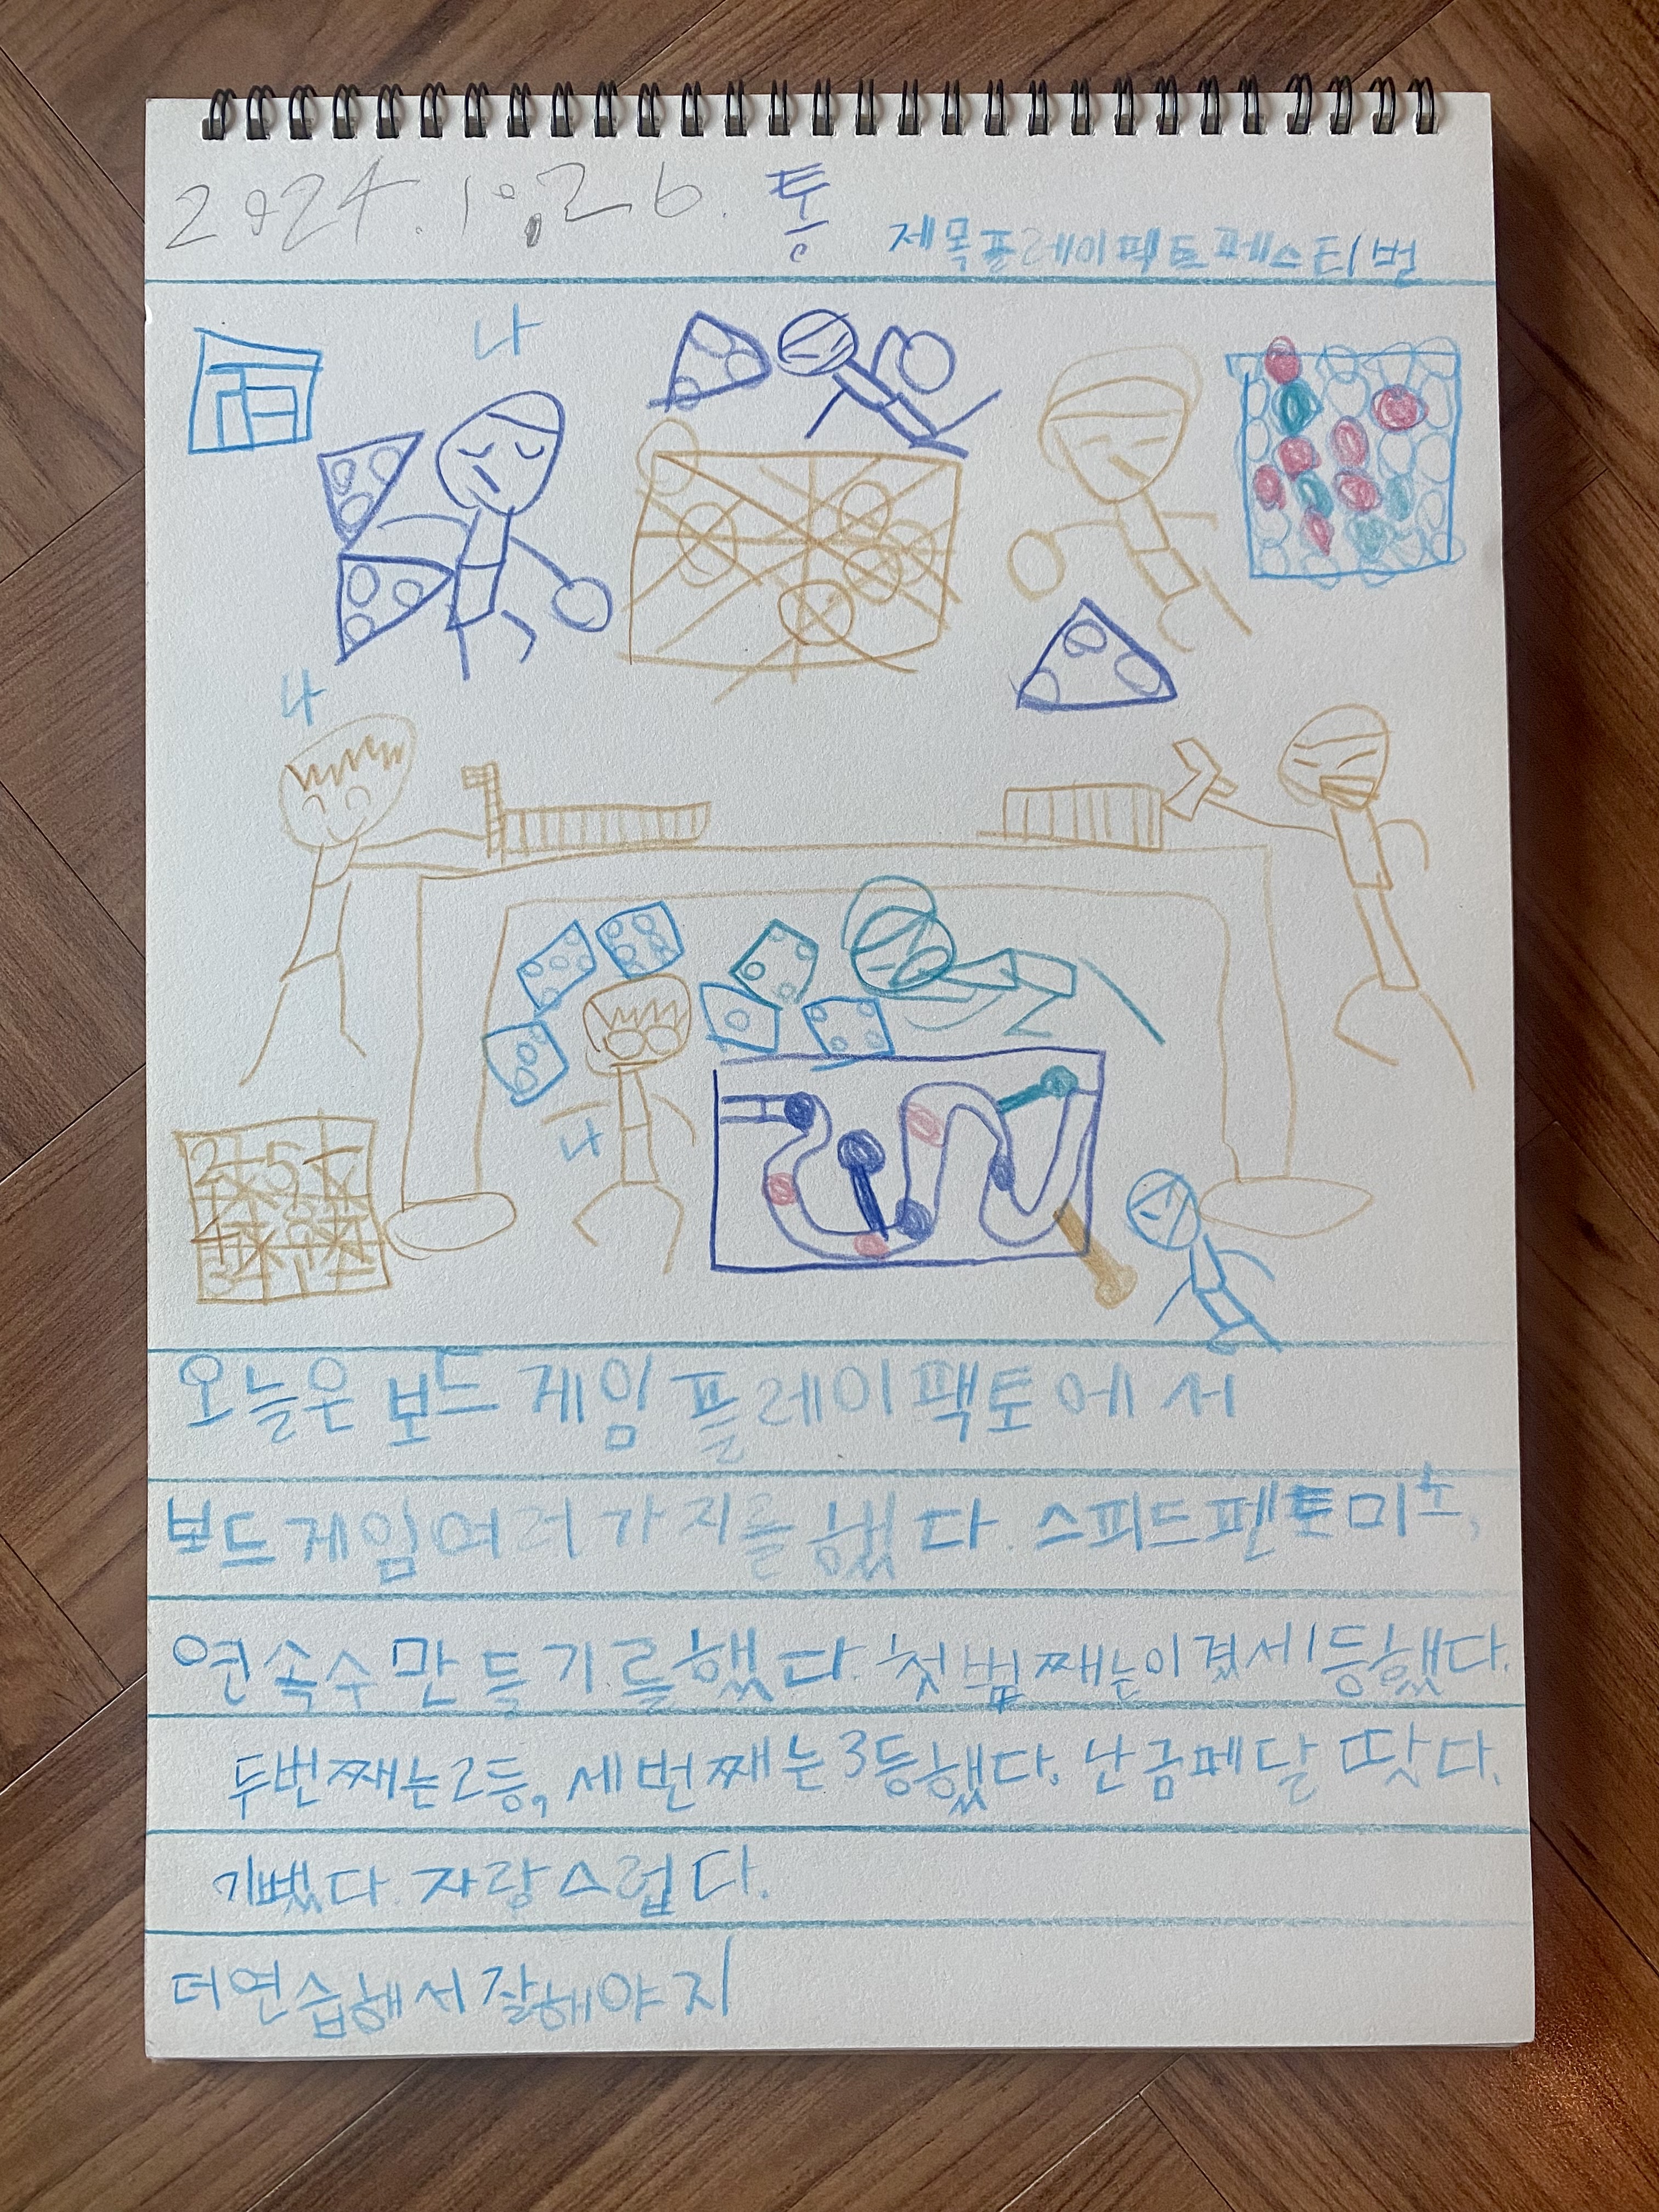 2024.10.26. 토
제목플레이팩토페스티벌
나
나
나
오늘은 보드게임플레이팩토에서
보드게임여러가지를 했다. 스피드펜토미노,
연속수만들기를했다. 첫번째는이겼서1등했다.
두번째는2등, 세번째는3등했다. 난금메달 땄다.
기뻤다. 자랑스럽다.
더연습해서잘해야지